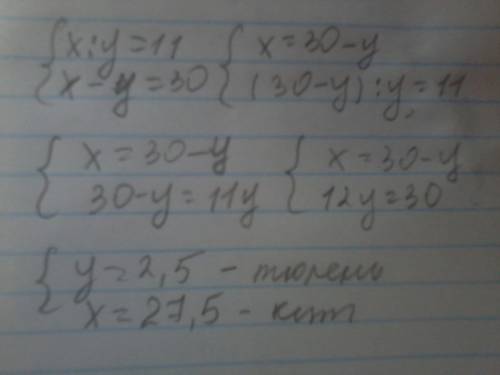 {x:y=11 {x=30-y
{x-y=30 {(30-y):y=11
{x=30-y {x=30-y
{30-y=11y {12y=30
{y=2,5 - тюлень
{x=27,5 - кит